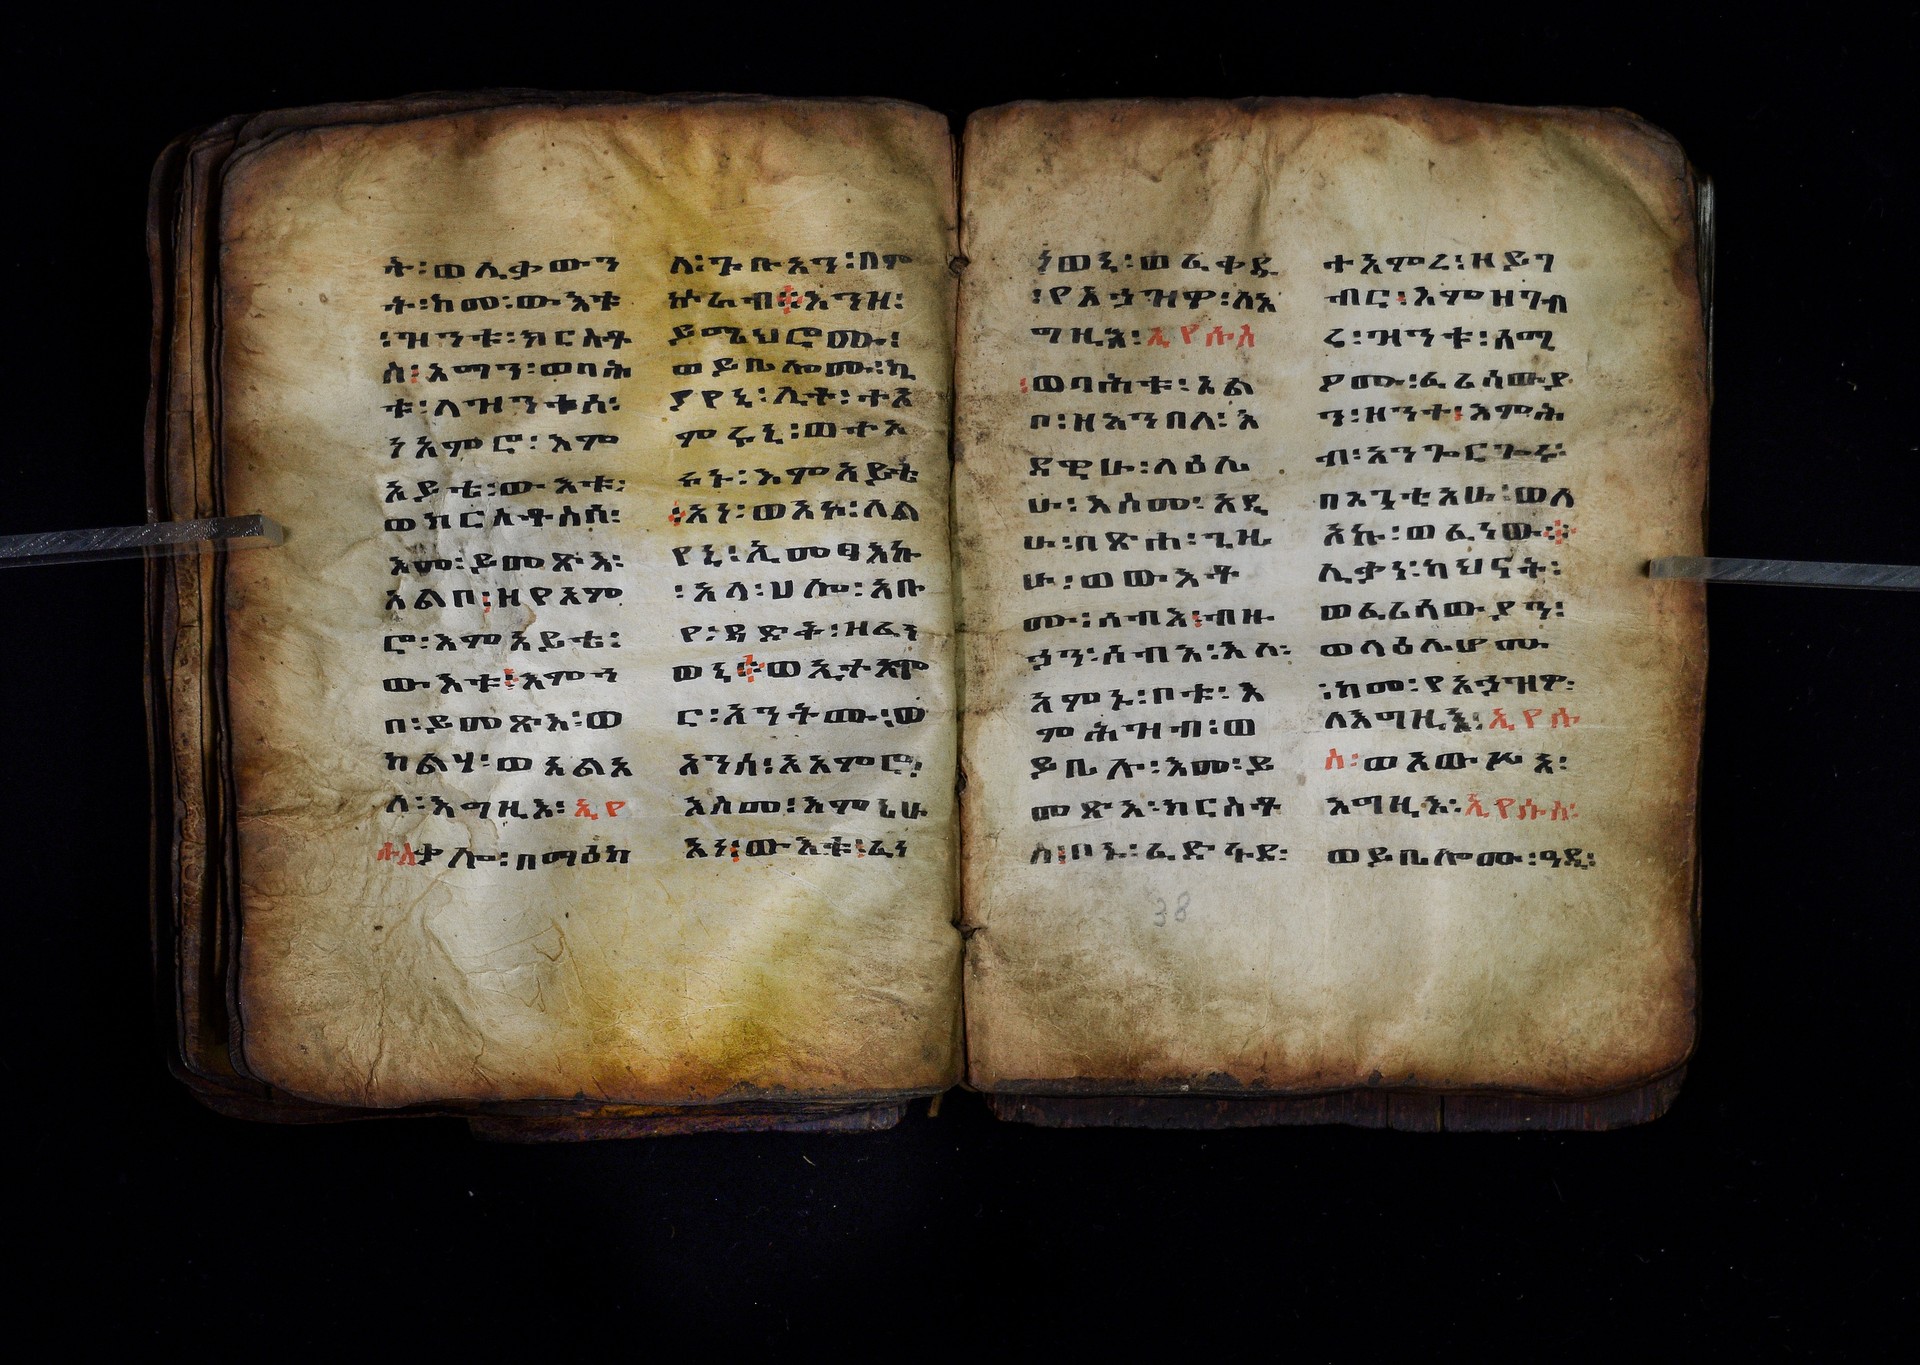 ት፡ወሊቃውን
ት፡ከመ፡ውእቱ
፡ዝንቱ፡ክርስቶ
ስ፡እማን፡ወባሕ
ቱ፡ለዝንቱሰ፡
ነአምሮ፡እም
አይቴ፡ውእቱ፡
ወክርስቶስሰ፡
እመ፡ይመጽእ፡
አልቦ፡ዘየአም
ሮ፡እምአይቴ፡
ውእቱ፡እምን
በ፡ይመጽእ፡ወ
ከልሃ፡ወአልአ
ለ፡እግዚእ፡ኢየ
ሱስቃሎ፡በማዕከ
ለ፡ጉቡአን፡በም
ኵራብ።እንዘ፡
ይሜህሮሙ፡
ወይቤሎሙ፡ኪ
ያየኒ፡ሊተ፡ተአ
ምሩኒ፡ወተአ
ሩኑ፡እምአይቴ
፡አነ፡ወአኮ፡ለል
የኒ፡ኢመፃእኩ
፡አላ፡ሀሎ፡አቡ
የ፡ጻድቅ፡ዘፈነ
ወኒ።ወኢተአም
ር፡አንትሙ፡ወ
አንሰ፡አአምሮ፡
እስመ፡እምኔሁ
አነ፡ውእቱ፡ፈነ
ነወኒ፡ወፈቀዱ
፡የአኃዝዎ፡ለእ
ግዚእ፡ኢየሱስ
፡ወባሕቱ፡አል
ቦ፡ዘአንበለ፡እ
ደዊሁ፡ላዕሌ
ሁ፡እስመ፡አዲ
ሁ፡በጽሐ፡ጊዜ
ሁ፡ወውእቶ
ሙ፡ሰብእ፡ብዙ
ኃን፡ሰብእ፡እለ፡
አምኑ፡ቦቱ፡እ
ምሕዝብ፡ወ
ይቤሉ፡እመ፡ይ
መጽእ፡ክርስቶ
ስ፡ቦኑ፡ፈድፋደ፡
ተአምረ፡ዘይገ
ብር፡እምዘገብ
ረ፡ዝንቱ፡ሰሚ
ዖሙ፡ፈሪሳውያ
ን፡ዘንተ፡እምሕ
ብ፡አንጐርጐሩ፡
በእንቲአሁ፡ወለ
አኩ፡ወፈነው።
ሊቃነ፡ካህናት፡
ወፈሪሳውያን፡
ወላዕሌሆሙ
፡ከመ፡የአኃዝዎ፡
ለእግዚእ፡ኢየሱ
ስ፡ወአውሥአ፡
እግዚእ፡ኢየሱስ፡
ወይቤሎሙ፡ዓዲ፡
38